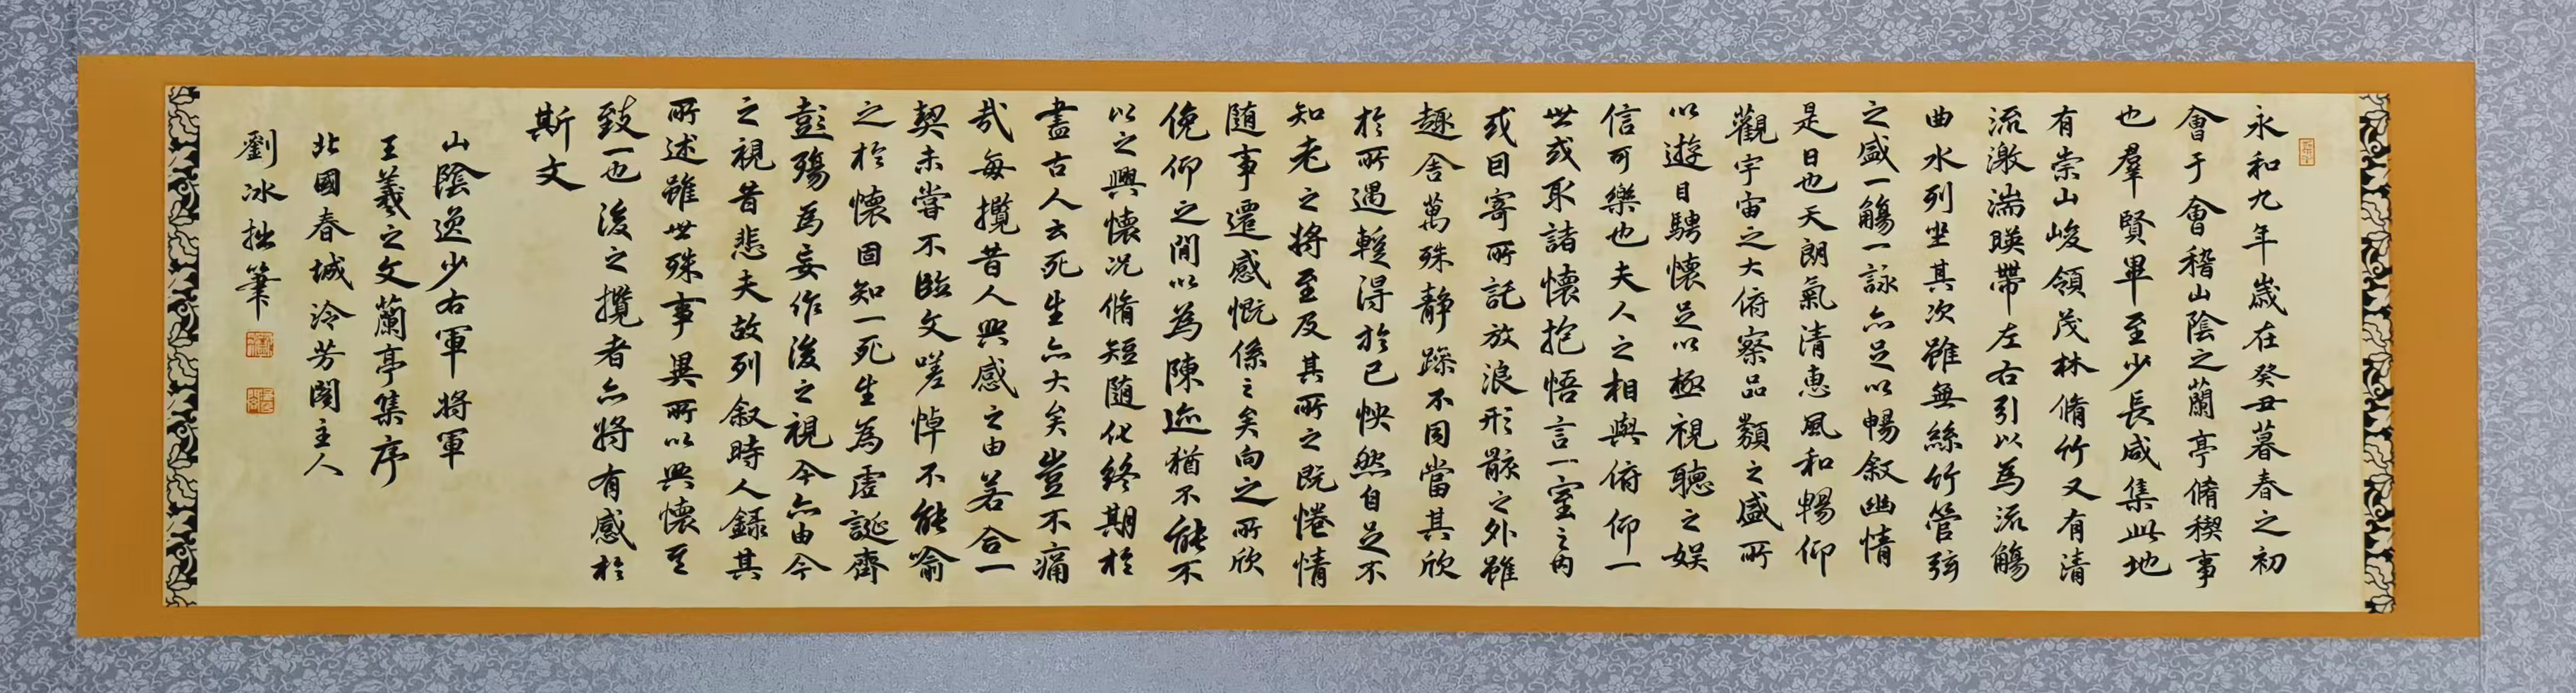 永和九年歲在癸丑暮春之初
會于會稽山陰之蘭亭脩稧事
也羣賢畢至少長咸集此地
有崇山峻領茂林脩竹又有清
流激湍暎帶左右引以為流觴
曲水列坐其次雖無絲竹管弦
之盛一觴一詠亦足以暢叙幽情
是日也天朗氣清惠風和暢仰
觀宇宙之大俯察品類之盛所
以遊目騁懷足以極視聽之娛
信可樂也夫人之相與俯仰一
世或取諸懷抱悟言一室之內
或因寄所託放浪形骸之外雖
趣舍萬殊静躁不同當其欣
於所遇蹔得於己怏然自足不
知老之將至及其所之既惓情
随事遷感慨係之矣向之所欣
俛仰之閒以為陳迹猶不能不
以之興懷況脩短随化終期於
盡古人云死生亦大矣豈不痛
哉每攬昔人興感之由若合一
契未嘗不臨文嗟悼不能喻
之於懷固知一死生為虛誕齊
彭殤為妄作後之視今亦由今
之視昔悲夫故列叙時人録其
所述雖世殊事異所以興懷其
致一也後之攬者亦將有感於
斯文
山陰逸少右軍將軍
王羲之文蘭亭集序
北國春城泠芳閣主人
劉冰拙筆